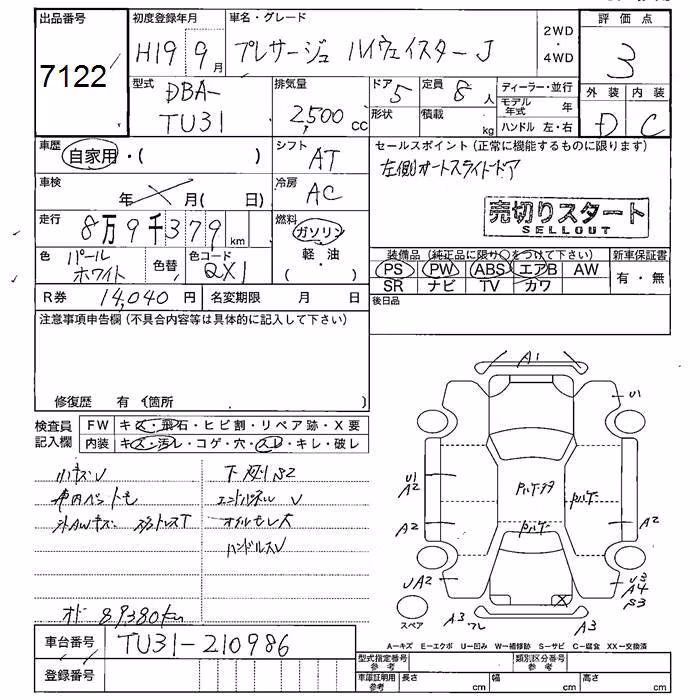 出品番号
初度登録年月
車名・グレード
2WD
・
4WD
評価点
7122
H19 9月
プレサージュ ハイウェイスター J
3
型式
DBA-
TU31
排気量
2,500 cc
ドア 5
定員 8人
ディーラー・並行
モデル年式 年
形状
積載 kg
ハンドル 左・右
外装 内装
D C
車歴
自家用・( )
シフト
AT
セールスポイント (正常に機能するものに限ります)
左側オートスライドドア
車検
年 月( 日)
冷房
AC
売切りスタート
SELLOUT
走行
8万9千379 km
燃料
ガソリン
・
軽・油
( )
色
パール
ホワイト
色替
色コード
QX1
装備品 (純正品に限り○をつけて下さい)
PS PW ABS エアB AW
SR ナビ TV カワ
新車保証書
有・無
R券 14,040 円
名変期限 月 日
後日品
注意事項申告欄 (不具合内容等は具体的に記入して下さい)
修復歴 有 (箇所 )
検査員
記入欄
FW キズ・飛石・ヒビ割・リペア跡・X要
内装 キズ・汚レ・コゲ・穴・スレ・キレ・破レ
ハンドルスレ
オド 89380km
A1
U1
U1
A2
A2
A2
UA2
U3
A4
S3
A3
A3
X
スペア
A−キズ E−エクボ U−凹み W−補修跡 S−サビ C−腐食 XX−交換済
車台番号 TU31-210986
登録番号
型式指定番号
参考
類別区分番号
参考
車庫証明用
参考
長さ cm
幅 cm
高さ cm